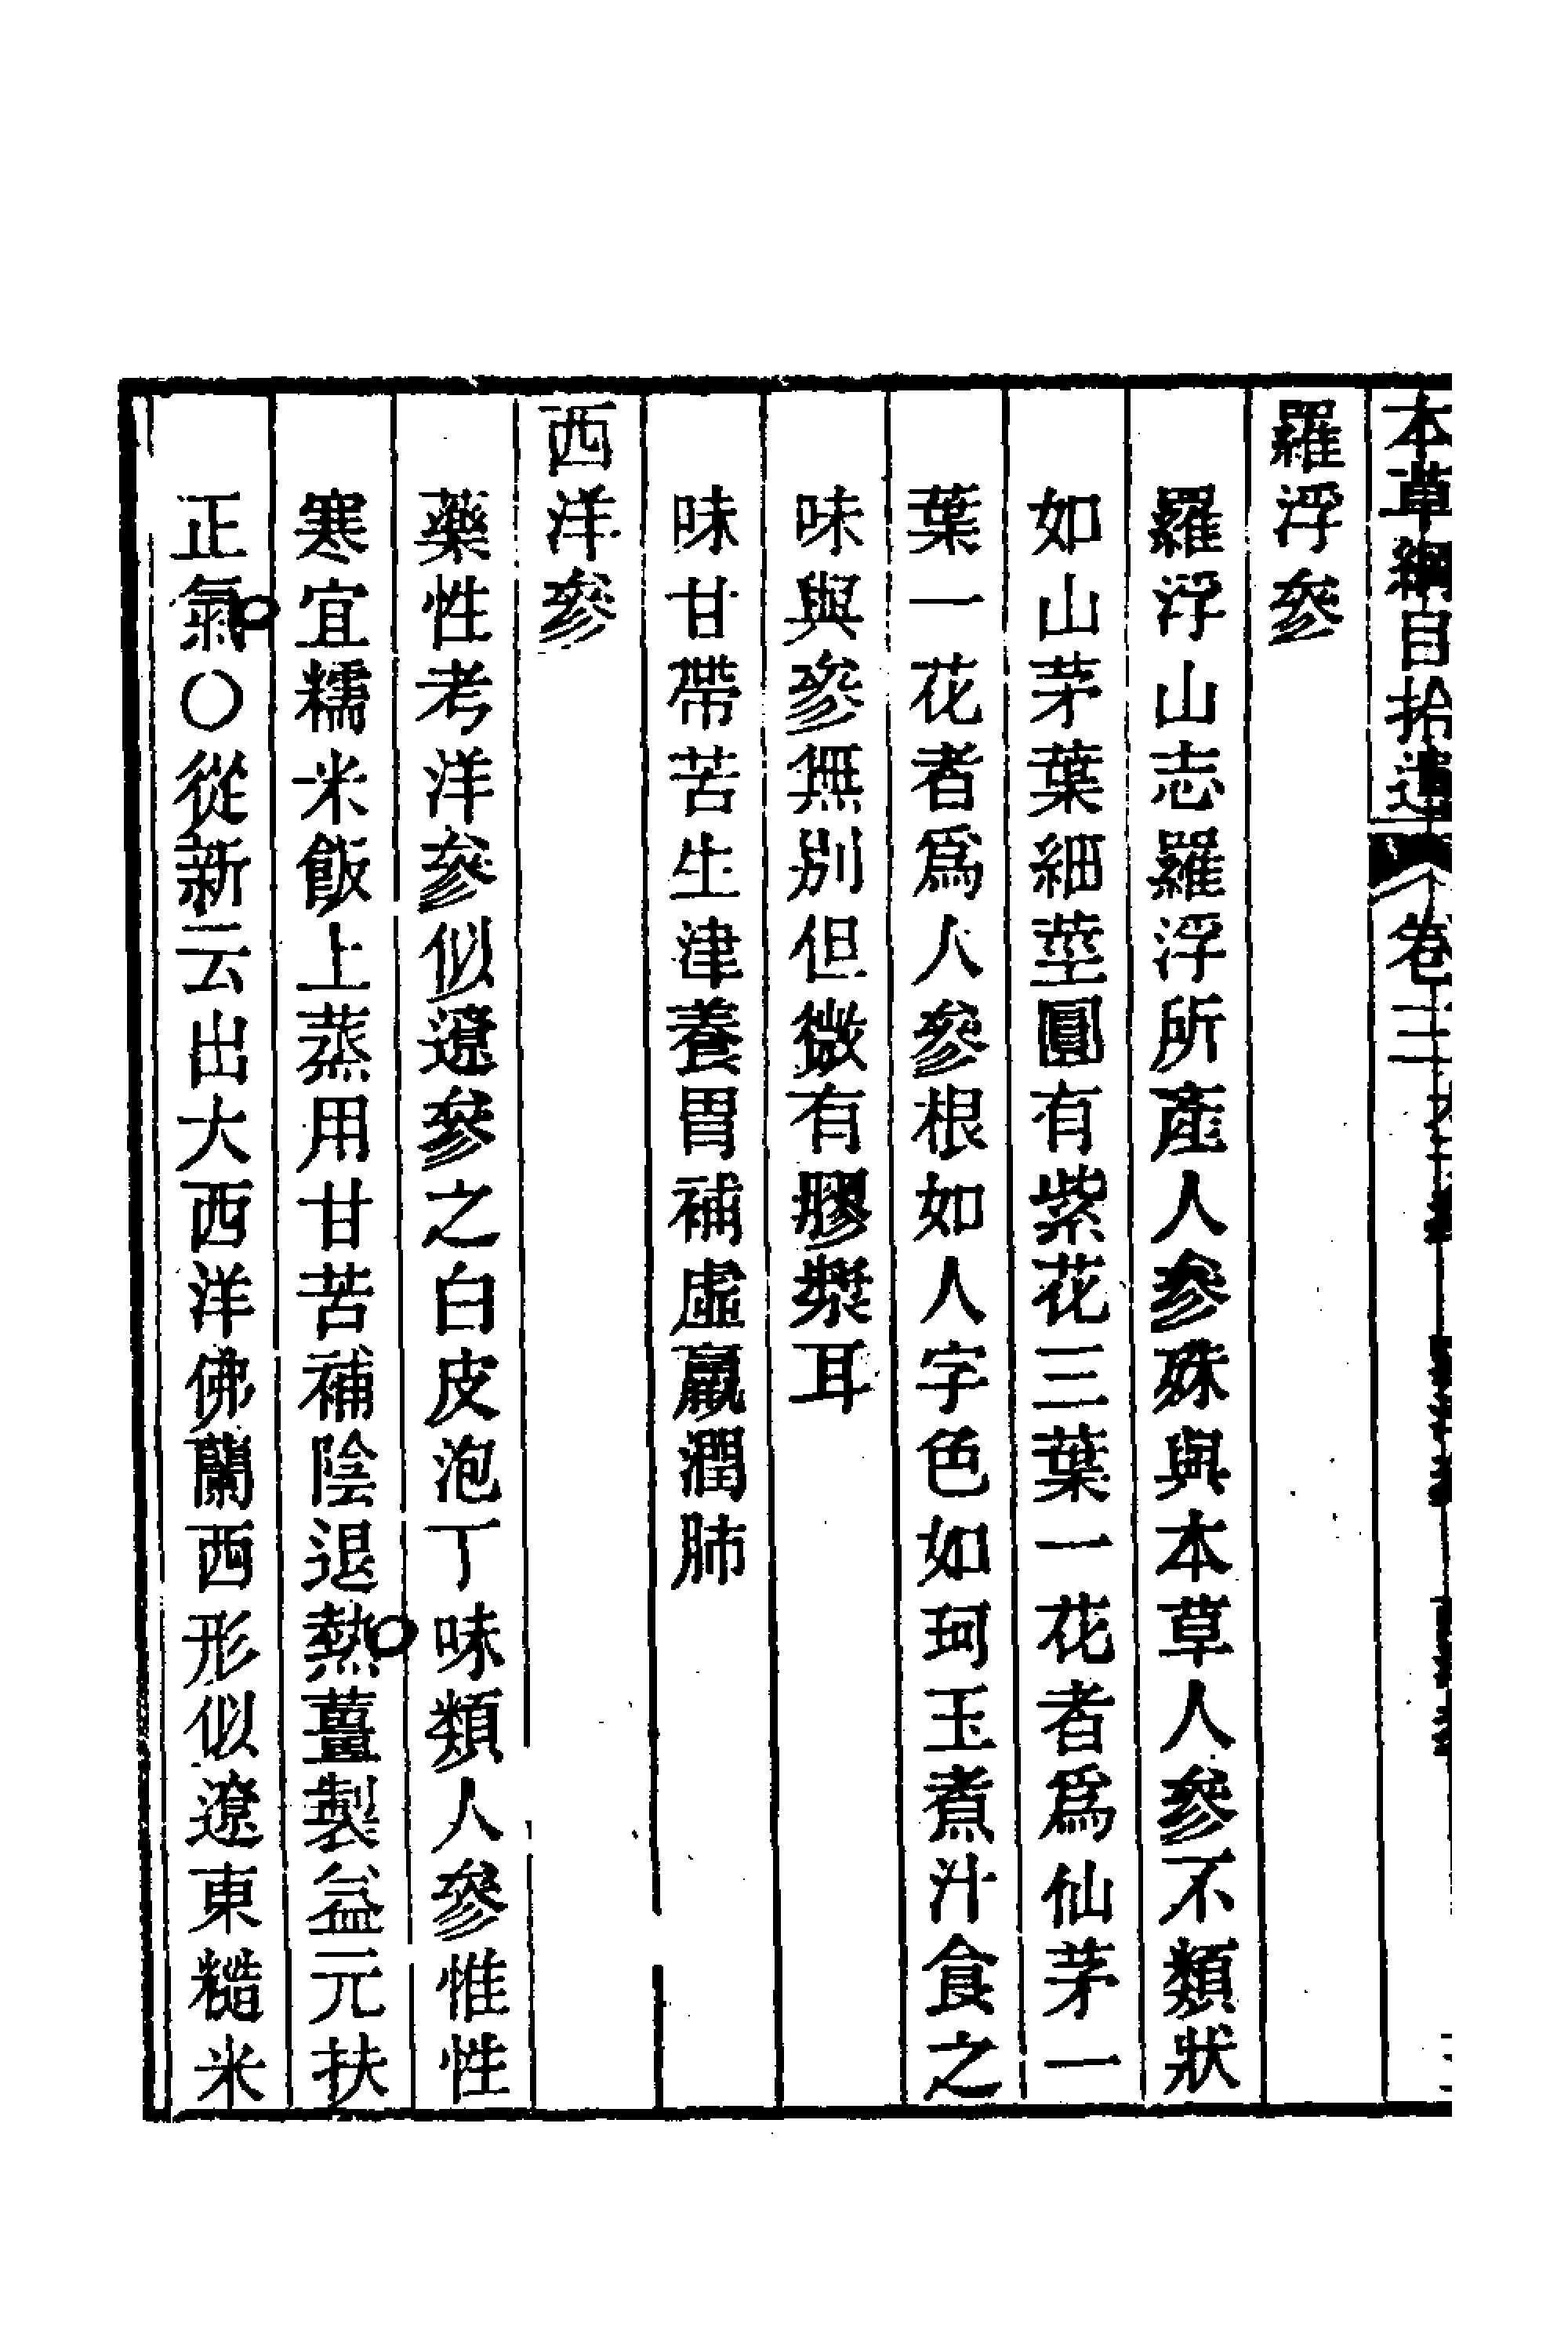 本草綱目拾遺 卷三
羅浮參
羅浮山志羅浮所產人參殊與本草人參不類狀
如山茅葉細莖圓有紫花三葉一花者爲仙茅一
葉一花者爲人參根如人字色如珂玉煮汁食之
味與參無別但微有膠漿耳
味甘帶苦生津養胃補虛羸潤肺
西洋參
藥性考洋參似遼參之白皮泡丁味類人參惟性
寒宜糯米飯上蒸用甘苦補陰退熱薑製益元扶
正氣○從新云出大西洋佛蘭西形似遼東糙米